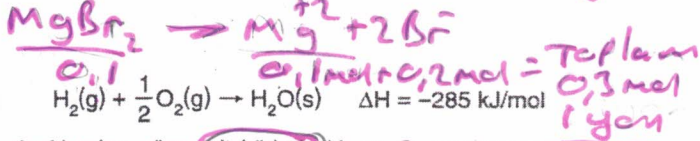 MgBr₂ → Mg⁺² + 2Br⁻
0,1 0,1mol + 0,2mol = Toplam
0,3 mol
iyon
H₂(g) + 1/2 O₂(g) → H₂O(s) ΔH = –285 kJ/mol